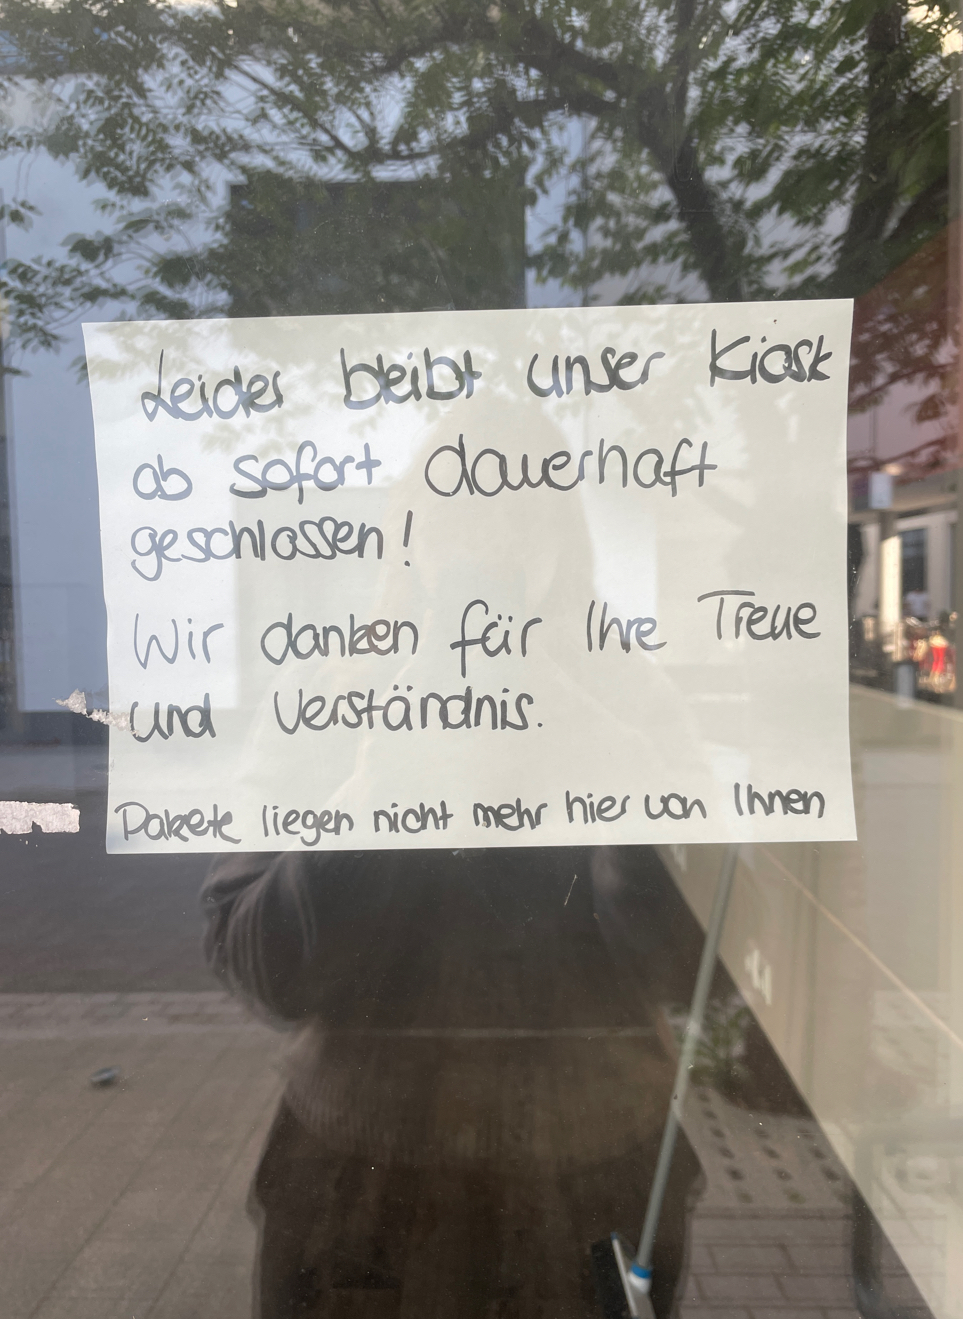 Leider bleibt unser Kiosk
ab sofort dauerhaft
geschlossen!
Wir danken für Ihre Treue
und Verständnis.
Pakete liegen nicht mehr hier von Ihnen